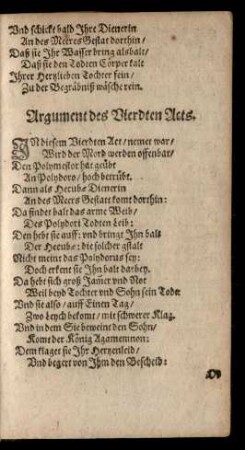 Vnd schickt bald Ihre Dienerin
An des Meeres Gestat dorthin/
Daß sie Ihr Wasser bring alsbalt/
Daß sie den Todten Cörper kalt
Ihrer Hertzlieben Tochter fein/
Zu der Begräbniß wäsche rein.
Argument des Vierdten Acts.
IN diesem Vierdten Act/ nemet war/
Wird der Mord werden offenbar/
Den Polymestor hat geübt
An Polydoro/ hoch betrübt.
Dann als Hecubæ Dienerin
An des Meers Gestatt komt dorthin:
Da findet balt das arme Weib/
Des Polydori Todten Leib:
Den hebt sie auff: vnd bringt Ihn balt
Der Hecubæ: die solcher gstalt
Nicht meint das Polydorus sey:
Doch erkent sie Ihn balt darbey.
Da hebt sich groß Jam̃er vnd Not
Weil beyd Tochter vnd Sohn sein Todt
Vnd sie also/ auff Einen Tag/
Zwo Leych bekomt/ mit schwerer Klag.
Vnd in dem Sie beweint den Sohn/
Komt der König Agamemnon:
Dem klaget sie Ihr Hertzenleid/
Vnd begert von Ihm den Bescheid: